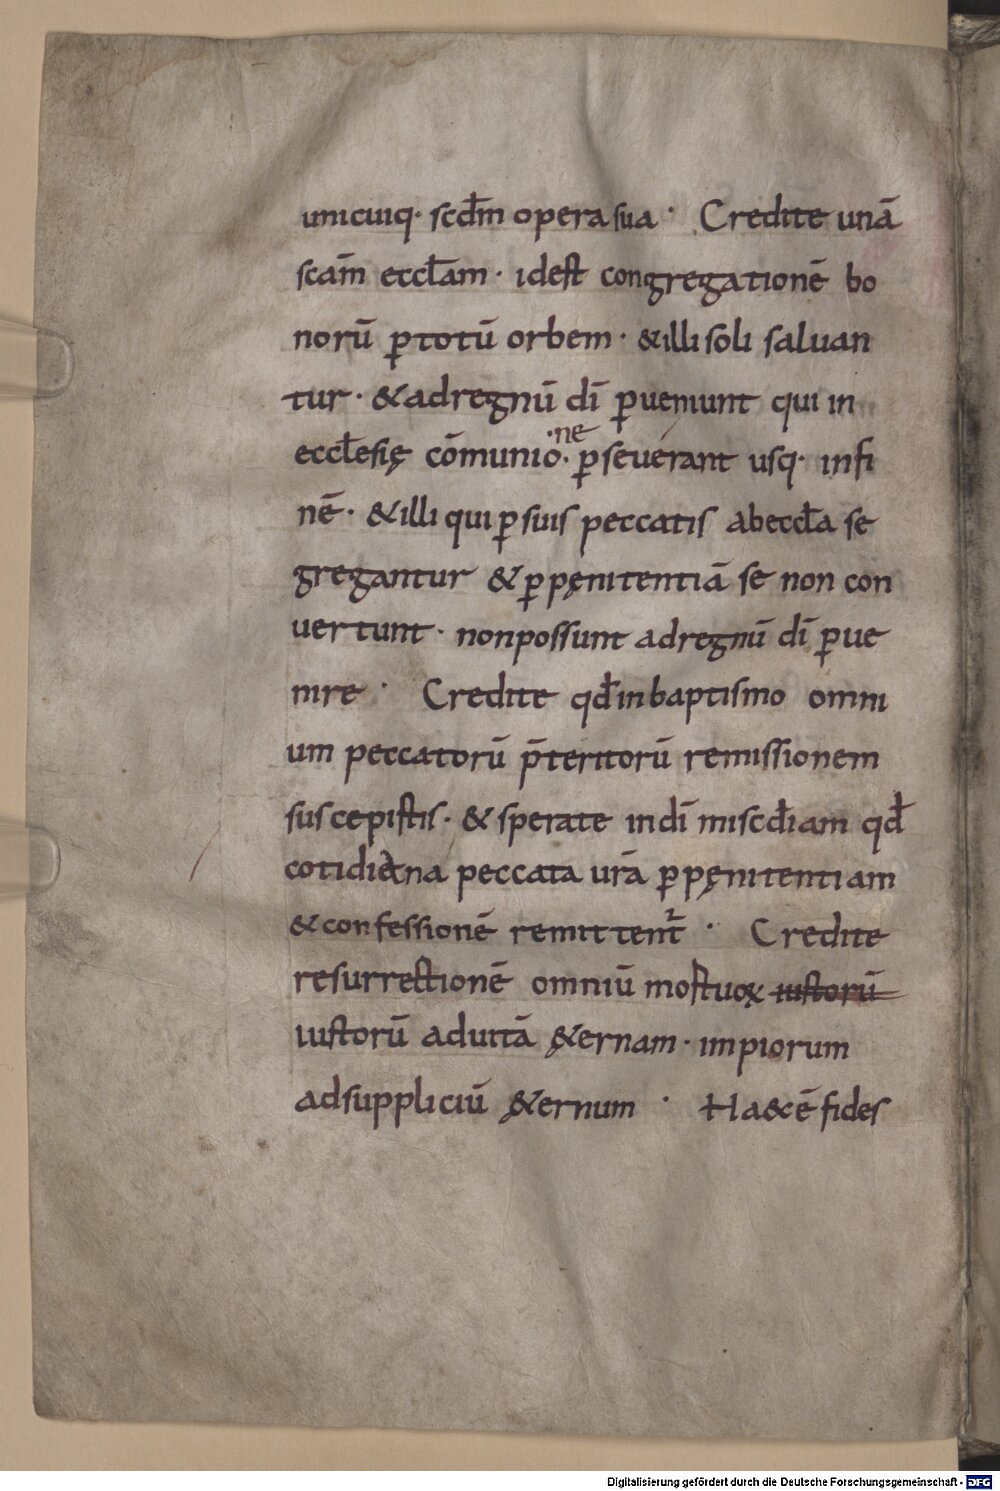 unicuiq· scdm̄ opera sua · Credite unā
scām eccl̄am · idest congregationē bo
norū ꝑtotū orbem · & illi soli saluan
tur · & adregnū dī ꝑueniunt qui in
eccl̄esię cōmunio·ne· ꝑseuerant usq· infi
nē · & illi qui ꝑ suis peccatis abeccl̄a se
gregantur & ꝑpęnitentiā se non con
uertunt · nonpossunt adregnū dī ꝑue
nire · Credite qd̄ inbaptismo omni
um peccatorū p̄teritorū remissionem
suscepistis · & sperate indī miscd̄iam qd̄
cotidiana peccata ur̄a ꝑpęnitentiam
& confessionē remittent̄ · Credite
resurrectionē omniū mortuoꝝ iustorū
iustorū aduitā &ernam · impiorum
adsuppliciū &ernum · Ha&c ē fides
Digitalisierung gefördert durch die Deutsche Forschungsgemeinschaft - DFG